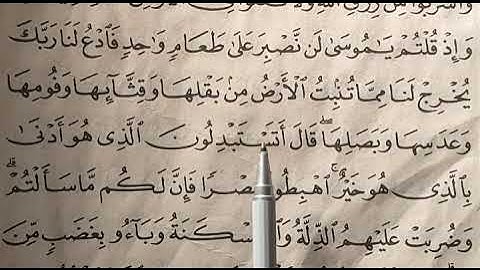 وَإِذْ قُلْتُمْ يَـٰمُوسَىٰ لَن نَّصْبِرَ عَلَىٰ طَعَامٍ وَٰحِدٍ فَٱدْعُ لَنَا رَبَّكَ
يُخْرِجْ لَنَا مِمَّا تُنۢبِتُ ٱلْأَرْضُ مِنۢ بَقْلِهَا وَقِثَّآئِهَا وَفُومِهَا
وَعَدَسِهَا وَبَصَلِهَا ۖ قَالَ أَتَسْتَبْدِلُونَ ٱلَّذِى هُوَ أَدْنَىٰ
بِٱلَّذِى هُوَ خَيْرٌ ۚ ٱهْبِطُوا۟ فَإِنَّ لَكُم مَّا سَأَلْتُمْ ۗ
وَضُرِبَتْ عَلَيْهِمُ ٱلذِّلَّةُ وَبَآءُو بِغَضَبٍ مِّنَ